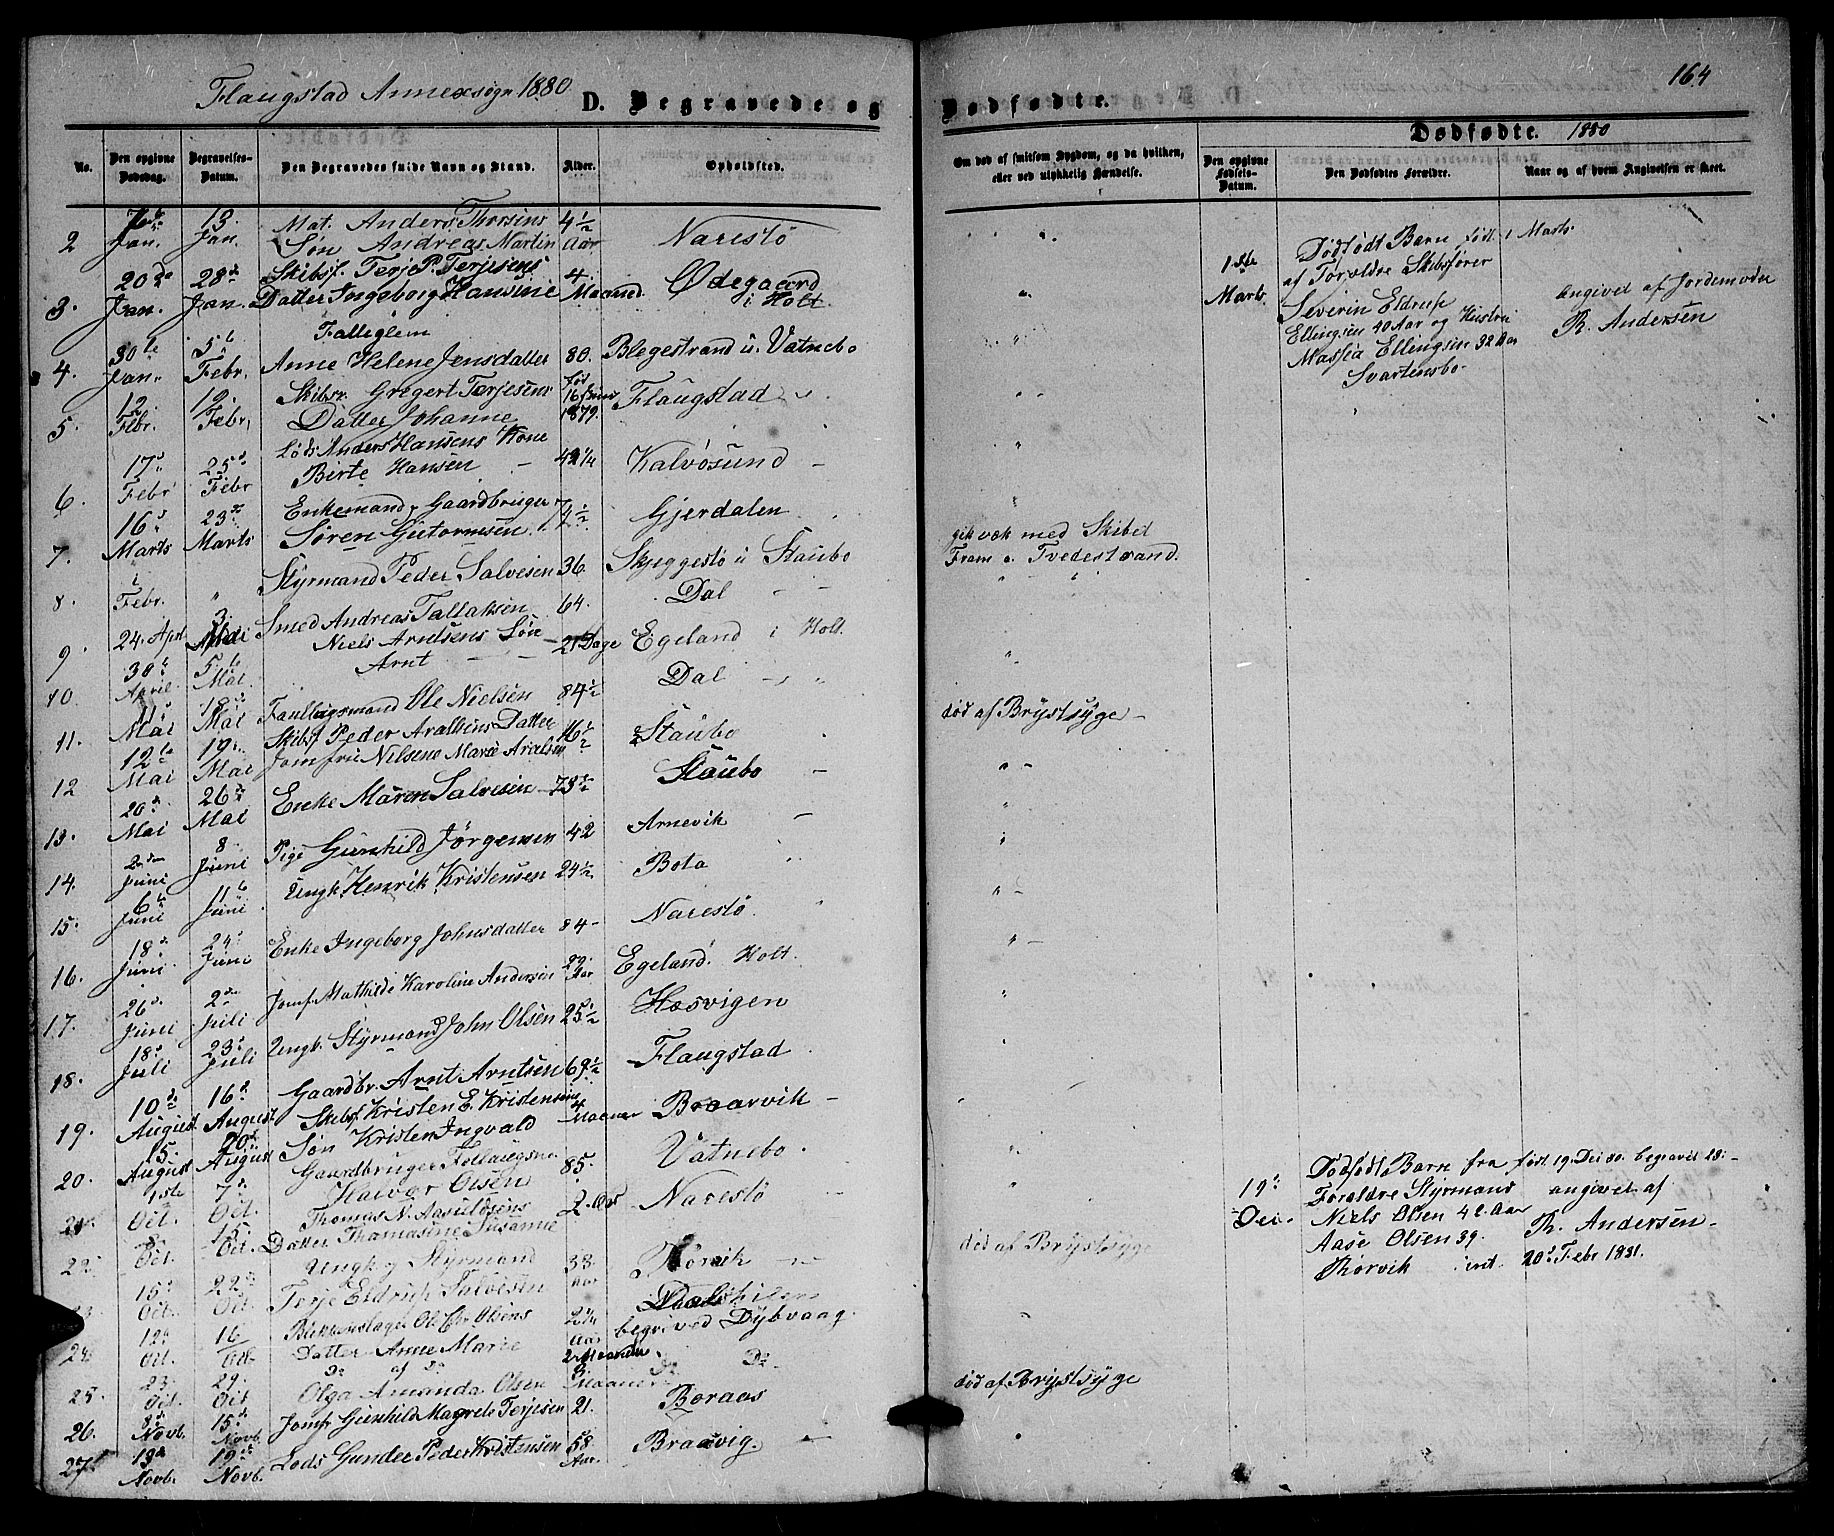 Flaugstad Annexsogn 1880. D. Begravede og Dødfødte. 164
Dødfødte. 1880
No. Den opgivne Dødsdag. Begravelses-Datum. Den Begravedes fulde Navn og Stand. Alder. Opholdsted.
Om død af smitsom Sygdom, og da hvilken, eller ved ulykkelig Hændelse. Den opgivne Fødsels-Datum. Den Dødfødtes Forældre. Naar og af hvem Angivelsen er skeet.
2 Jan. 13 Jan. Mat. Anders Thorsens Søn Andreas Martin 4 1/2 Aar Narestö
3. 20de Jan. 28de Jan. Skibsf. Terje P. Terjesens Datter Ingeborg Hansine 4 Maaned. Ødegaard i Holt
4. 30te Jan. 5te Febr. Falliglem Anne Helene Jensdatter 80. Blegestrand u. Vatnebo
5. 12. Fbr. 19. Febr. Skibsr. Gregert Terjesens Datter Johanne fød 16 Juni 1879. Flaugstad
6. 17de Febr 25de Febr Lods Anders Hansens Kone Birte Hansen 42 1/4 Kalvösund
7. 16de Marts 23de Marts Enkemand, Gaardbruger Søren Gutormsen 74 1/2 Gjerdalen
8. i Febr. " Styrmand Peder Salvesen 36. Skjeggestö u Staubo
gik væk med Skibet
Fram a. Tvedestrand.
9. 24. April 3. Mai Smed Andreas Tallaksen 64. Dal
10. 30te April 5te Mai Niels Arntsens Søn Arnt 21 Dage Egeland i Holt.
11. 11te Mai 18de Mai Ole Nielsen 84 1/2 Dal
12 12te Mai 19. Mai Skibsf Peder Aralsens Datter Jomfru Nilsene Marie Aralsen 16 1/2 Staubo
død af Brystsyge
13. 20de Mai 26de Mai Enke Maren Salvesen 73 1/2 Staubo
14. 2den Juni 8. Juni Pige Gunhild Jørgensen 42 Arnevik
15. 6te Juni 11te Juni Ungk. Henrik Kristensen 24 1/2 Bota
16. 18de Juni 24de Juni Enke Ingeborg Johnsdatter 84 Narestö
17. 26de Juni 2den Juli Jomf. Mathilde Karoline Andersen 22 Aar Egeland. Holt.
18. 18de Juli 23de Juli Ungk. Styrmand John Olsen 25 1/2 Hæsvigen
19. 10de August 16de August Gaardbr. Arnt Arntsen 69 1/2 Flaugstad
20. 15. August 20de August Skibsf Kristen E. Kristensens Søn Kristen Ingvald 4 Maaner Braarvik
21. 1ste Oct. 7de Oct. Gaardbruger Halvor Olsen 85. Vatnebo
22. 8 Oct. 15. Oct. Thomas N. Aasuldsens Datter Thomasine Susanne 2. Aar Narestö
23. 15de Oct. 22de Oct. Ungk og Styrmand Terje Eldrup Salvesen 33 Aar Thorvik
død af Brystsyge
24 12te Oct. 16 Oct. Ole Chr Olsens Datter Anne Marie Aar begr. ved Dybvaag
25. 23 Oct. 29. Oct Do af do Olga Amanda Olsen Maaner do Do
26. 8de Novb. 15de Novb. Jomfr Gunhild Magrete Terjesen 21. Boraas
død af Brystsyge
27 13de Novb. 19de Novb. Lods Gunder Peder Kristensen 58 Aar. Braavig.
1ste Marts
Dødfødt Barn født 1 Marts
af Foraldre Skibsfører
Severin Eldrup
Ellingsen 40 Aar og Hustru
Massia Ellingsen 32 Aar
Svartensbo.
Angivet af Jordemoder
R. Andersen
19de Dei.
Dødfødt Barn fra født 19. Dei 80. begravet 28
Foraldre Styrmand angivet af
Niels Olsen 42 Aar R. Andersen
Aase Olsen 39.
Thorvik ind. 20de Febr 1881.